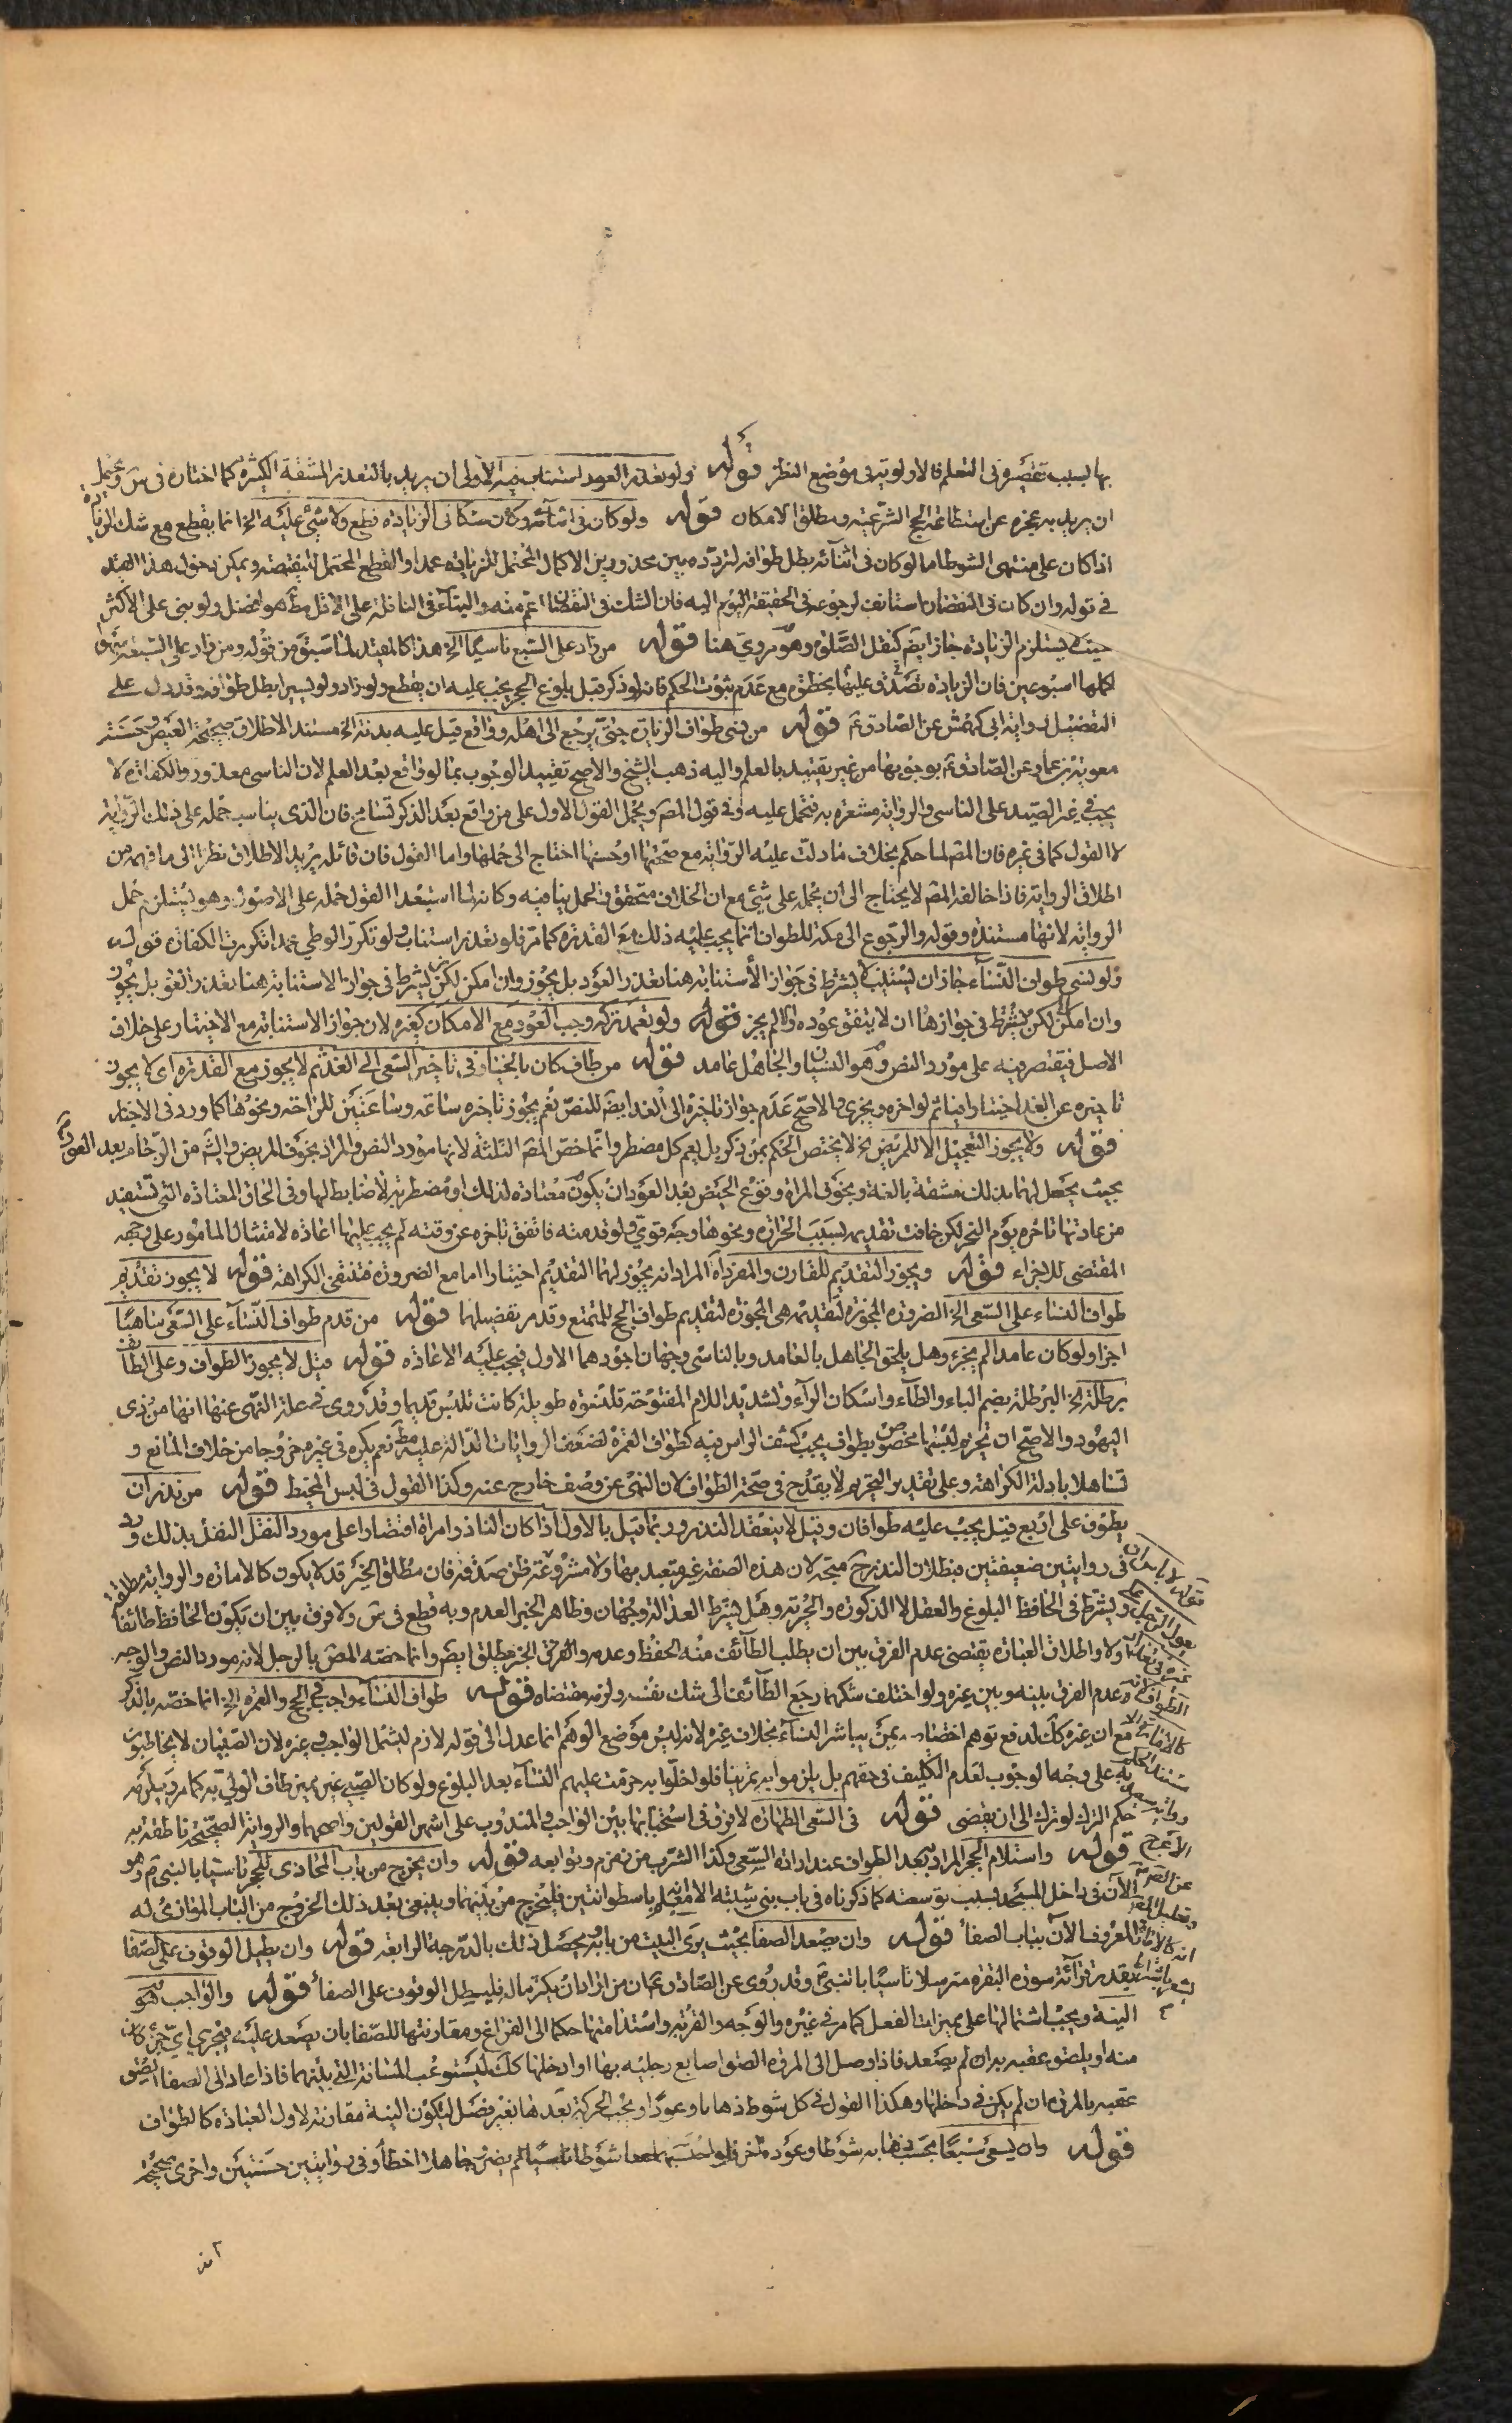 بها بسبب تقصيره فى التعلم فالاولوية فى موضع النظر قوله ولو تعذر العود استناب فيه الاولى ان يريد بالتعذر المشقة الكثيرة كما اختاره فى س ويحتمل
ان يريد به عجزه عن استطاعة الحج الشرعية ومطلق الامكان قوله ولو كان فى اثنائه وكان شكا فى الزيادة قطع ولا شئ عليه الخ انما يقطع مع شك الزيادة
اذا كان على منتهى الشوط اما لو كان فى اثنائه بطل طوافه لتردده بين محذورين الاكمال المحتمل للزيادة عمدا والقطع المحتمل للنقيصة ويمكن دخول هذا القيد
فى قوله وان كان فى النقصان استانف لرجوعه فى الحقيقة اليه فان الشك فى النقصان اعم منه والبناء فى النافلة على الاقل مط هو افضل ولو بنى على الاكثر
حيث لا يستلزم الزيادة جاز ايضا كنفل الصلوة وهو مروى هنا قوله من زاد على السبع ناسيا الخ هذا كالمقيد لما سبق من قوله ومن زاد على السبعة سهوا
اكملها اسبوعين فان الزيادة تصدق عليها بخطوة مع عدم ثبوت الحكم فانه لو ذكر قبل بلوغ الحجر يجب عليه ان يقطع ولو زاد ولو يسيرا بطل طوافه وقد دل على
التفصيل رواية ابى كهمش عن الصادق ع قوله من نسى طواف الزيارة حتى يرجع الى اهله وواقع قيل عليه بدنة الخ مستند الاطلاق صحيحة العيص وحسنة
معوية بن عمار عن الصادق ع بوجوبها من غير تقييد بالعلم واليه ذهب الشيخ والاصح تقييد الوجوب بما لو واقع بعد العلم لان الناسى معذور والكفارة لا
يجب فى غير الصيد على الناسى والرواية مشعرة به فتحمل عليه وفى قول المص ويحمل القول الاول على من واقع بعد الذكر تسامح فان الذى يناسب حمله على ذلك الرواية
لا القول كما فى غيره فان المص لما حكم بخلاف ما دلت عليه الرواية مع صحتها او حسنها احتاج الى حملها واما القول فان قائله يريد الاطلاق نظرا الى ما فهمه من
اطلاق الرواية فاذا خالفه المص لا يحتاج الى ان يحمله على شئ مع ان الخلاف متحقق والحمل ينافيه وكانه لما استبعد القول حمله على الاصول وهو يستلزم حمل
الرواية لانها مستنده وقوله والرجوع الى مكة للطواف انما يجب عليه ذلك مع القدرة كما مر فلو تعذر استناب ولو تكرر الوطى عمدا تكررت الكفارة قوله
ولو نسى طواف النساء جاز ان يستنيب لا يشترط فى جواز الاستنابة هنا تعذر العود بل يجوز وان امكن لكن يشترط فى جواز الاستنابة هنا تعذر العود بل يجوز
وان امكن لكن يشترط فى جوازها ان لا يتفق عوده والا لم يجز قوله ولو تعمد تركه وجب العود مع الامكان كغيره لان جواز الاستنابة مع الاختيار على خلاف
الاصل فيقتصر فيه على مورد النص وهو النسيان والجاهل عامد قوله من طاف كان بالخيار فى تاخير السعى الى الغد ثم لا يجوز مع القدرة اى لا يجوز
تاخيره عن الغد اختيارا فياثم لو اخره ويجزى والاصح عدم جواز تاخيره الى الغد ايضا للنص نعم يجوز تاخيره ساعة وساعتين للراحة ونحوها كما ورد فى الاخبار
قوله ولا يجوز التعجيل الا للمريض الخ لا يختص الحكم بمن ذكر بل يعم كل مضطر وانما خص المص الثلثة لانها مورد النص والمراد بخوف المريض والشيخ من الزحام بعد العود
بحيث يحصل لهما بذلك مشقة بالغة وبخوف المراة وقوع الحيض بعد العود ان يكون معتادة لذلك او مضطربة لا ضابط لها وفى الحاق المعتادة التى تستفيد
من عادتها تاخره يوم النحر لكن خافت تقديمه بسبب الحرارة ونحوها وجه قوى ولو قدمته فاتفق تاخره عن وقته لم يجب عليها اعادة لامتثال المامور على وجهه
المقتضى للاجزاء قوله ويجوز التقديم للقارن والمفرد الخ المراد انه يجوز لهما التقديم اختيارا اما مع الضرورة فتنتفى الكراهة قوله لا يجوز تقديم
طواف النساء على السعى الخ الضرورة المجوزة لتقديمه هى المجوزة لتقديم طواف الحج للمتمتع وقد مر تفصيلها قوله من قدم طواف النساء على السعى ساهيا
اجزا ولو كان عامدا لم يجز وهل يلحق الجاهل بالعامد وبالناسى وجهان اجودهما الاول فيجب عليه الاعادة قوله قيل لا يجوز الطواف وعلى الطائف
برطلة الخ البرطلة بضم الباء والطاء واسكان الراء وتشديد اللام المفتوحة قلنسوة طويلة كانت تلبس قديما وقد روى فى علة النهى عنها انها من زى
اليهود والاصح ان تحريم لبسها مخصوص بطواف يجب كشف الراس فيه كطواف العمرة لضعف الروايات الدالة عليه مط نعم يكره فى غيره خروجا من خلاف المانع و
تساهلا بادلة الكراهة وعلى تقدير التحريم لا يقدح فى صحة الطواف لان النهى عن وصف خارج عنه وكذا القول فى لبس المخيط قوله من نذر ان
يطوف على اربع قيل يجب عليه طوافان وقيل لا ينعقد النذر وربما قيل بالاول اذا كان الناذر امراة اقتصارا على مورد النقل النص بذلك ورد
فى روايتين ضعيفتين فبطلان النذر ح متجه لان هذه الصفة غير متعبد بها ولا مشروعة
ويشترط فى الحافظ البلوغ والعقل لا الذكورة والحرية وهل يشترط العدالة وجهان وظاهر الخبر العدم وبه قطع فى س ولا فرق بين ان يكون الحافظ طائفا
او لا واطلاق العبارة يقتضى عدم الفرق بين ان يطلب الطائف منه الحفظ وعدمه والفرق الخبر مطلق ايضا وانما خصه المص بالرجل لانه مورد النص والوجه
عدم الفرق بينه وبين غيره ولو اختلف شكهما رجع الطائف الى شك نفسه ولزمه مقتضاه قوله طواف النساء واجب فى الحج والعمرة الخ انما خصه بالذكر
مع ان غيره كك لدفع توهم اختصاصه بمن يباشر النساء بخلاف غيره لانه ليس موضع الوهم انما عدل الى قوله لازم ليشمل الواجب وغيره لان الصبيان لا يخاطبون
به على وجه الوجوب لعدم التكليف فى حقهم بل يلزموا به تمرينا فلو اخلوا به حرمت عليهم النساء بعد البلوغ ولو كان الصبى غير مميز طاف الولى به كما مر ويلزمه
حكم الترك لو تركه الى ان يقضى قوله فى السعى الطهارة لا فرق فى استحبابها بين الواجب والمندوب على اشهر القولين واصحهما والرواية الصحيحة ناطقة به
قوله واستلام الحجر المراد بعد الطواف عند ارادة السعى وكذا الشرب من زمزم وتوابعه قوله وان يخرج من باب المحاذى للحجر تاسيا بالنبى ص وهو
الآن فى داخل المسجد بسبب توسعته كما ذكرناه فى باب بنى شيبة الا انه معلم باسطوانتين فليخرج من بينهما وينبغى بعد ذلك الخروج من الباب الموازى له
المعروف الآن بباب الصفا قوله وان يصعد الصفا بحيث يرى البيت من بابه يحصل ذلك بالدرجة الرابعة قوله وان يطيل الوقوف على الصفا
بقدر قرائة سورة البقرة مترسلا تاسيا بالنبى ص وقد روى عن الصادق ع ان من اراد ان يكثر ماله فليطل الوقوف على الصفا قوله والواجب هو
النية ويجب اشتمالها على مميزات الفعل كما مر فى غيره والوجه والقربة واستدامتها حكما الى الفراغ ومقارنتها للصفا بان يصعد عليه فيجزى اى جزء كان
منه او يلصق عقبه به ان لم يصعد فاذا وصل الى المروة الصق اصابع رجليه بها او ادخلها كك ليستوعب المسافة التى بينهما فاذا عاد الى الصفا الصق
عقبه بالمروة ان لم يكن فى داخلها وهكذا القول فى كل شوط ذهابا وعودا ويجب الحركة بعدها بغير فصل ليكون النية مقارنة لاول العبادة كالطواف
قوله وان يسعى سبعا يحسب ذهابه شوطا وعوده آخر فلو احتسبهما شوطا ناسيا لم يضر وجاهلا اخطأ وفى روايتين حسنتين واخرى صحيحة